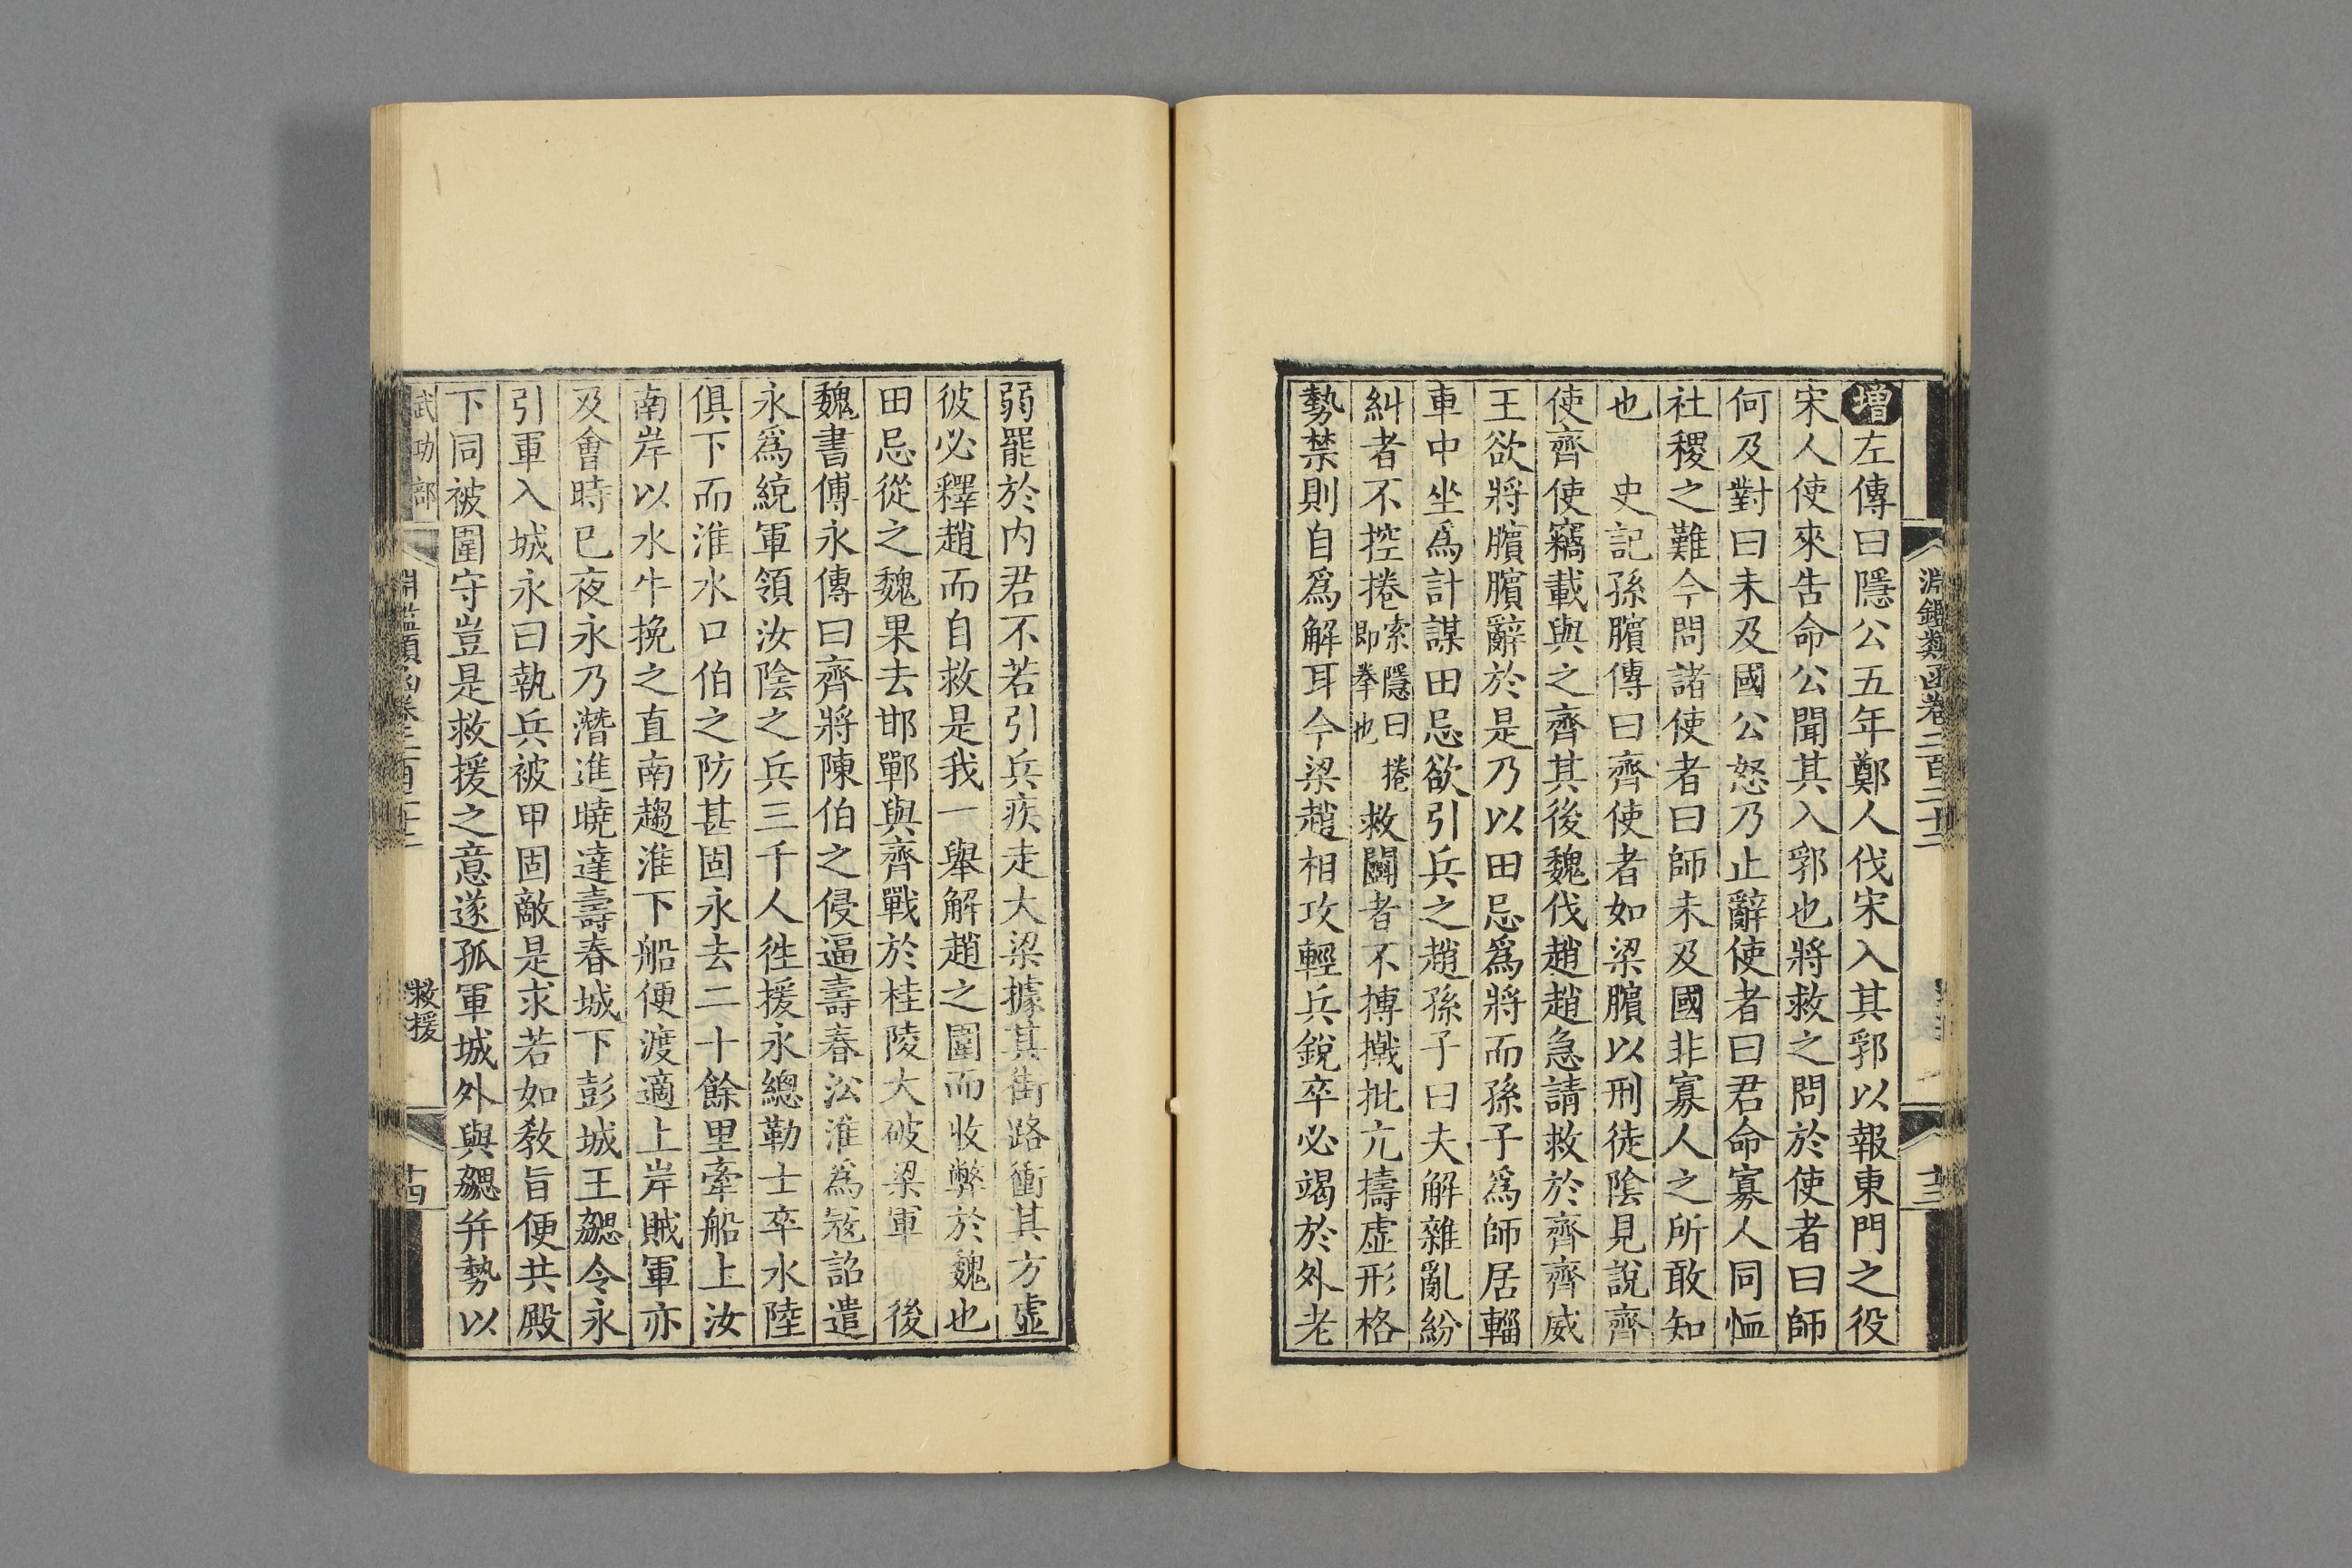 淵鑑類函卷二百二十二
十三
增左傳曰隱公五年鄭人伐宋入其郛以報東門之役
宋人使來告命公聞其入郛也將救之問於使者曰師
何及對曰未及國公怒乃止辭使者曰君命寡人同恤
社稷之難今問諸使者曰師未及國非寡人之所敢知
也　史記孫臏傳曰齊使者如梁臏以刑徒陰見說齊
使齊使竊載與之齊其後魏伐趙趙急請救於齊齊威
王欲將臏臏辭於是乃以田忌爲將而孫子爲師居輜
車中坐爲計謀田忌欲引兵之趙孫子曰夫解雜亂紛
糾者不控捲索隱曰捲即拳也救鬭者不搏撠批亢擣虛形格
勢禁則自爲解耳今梁趙相攻輕兵銳卒必竭於外老
弱罷於内君不若引兵疾走大梁據其街路衝其方虛
彼必釋趙而自救是我一舉解趙之圍而收弊於魏也
田忌從之魏果去邯鄲與齊戰於桂陵大破梁軍　後
魏書傅永傳曰齊將陳伯之侵逼壽春㳂淮爲寇詔遣
永爲綂軍領汝陰之兵三千人徃援永總勒士卒水陸
俱下而淮水口伯之防甚固永去二十餘里牽船上汝
南岸以水牛挽之直南趨淮下船便渡適上岸賊軍亦
及會時已夜永乃潛進曉達壽春城下彭城王勰令永
引軍入城永曰執兵被甲固敵是求若如教旨便共殿
下同被圍守豈是救援之意遂孤軍城外與勰并勢以
武功部
淵鑑類函卷二百二十二
救援
十四